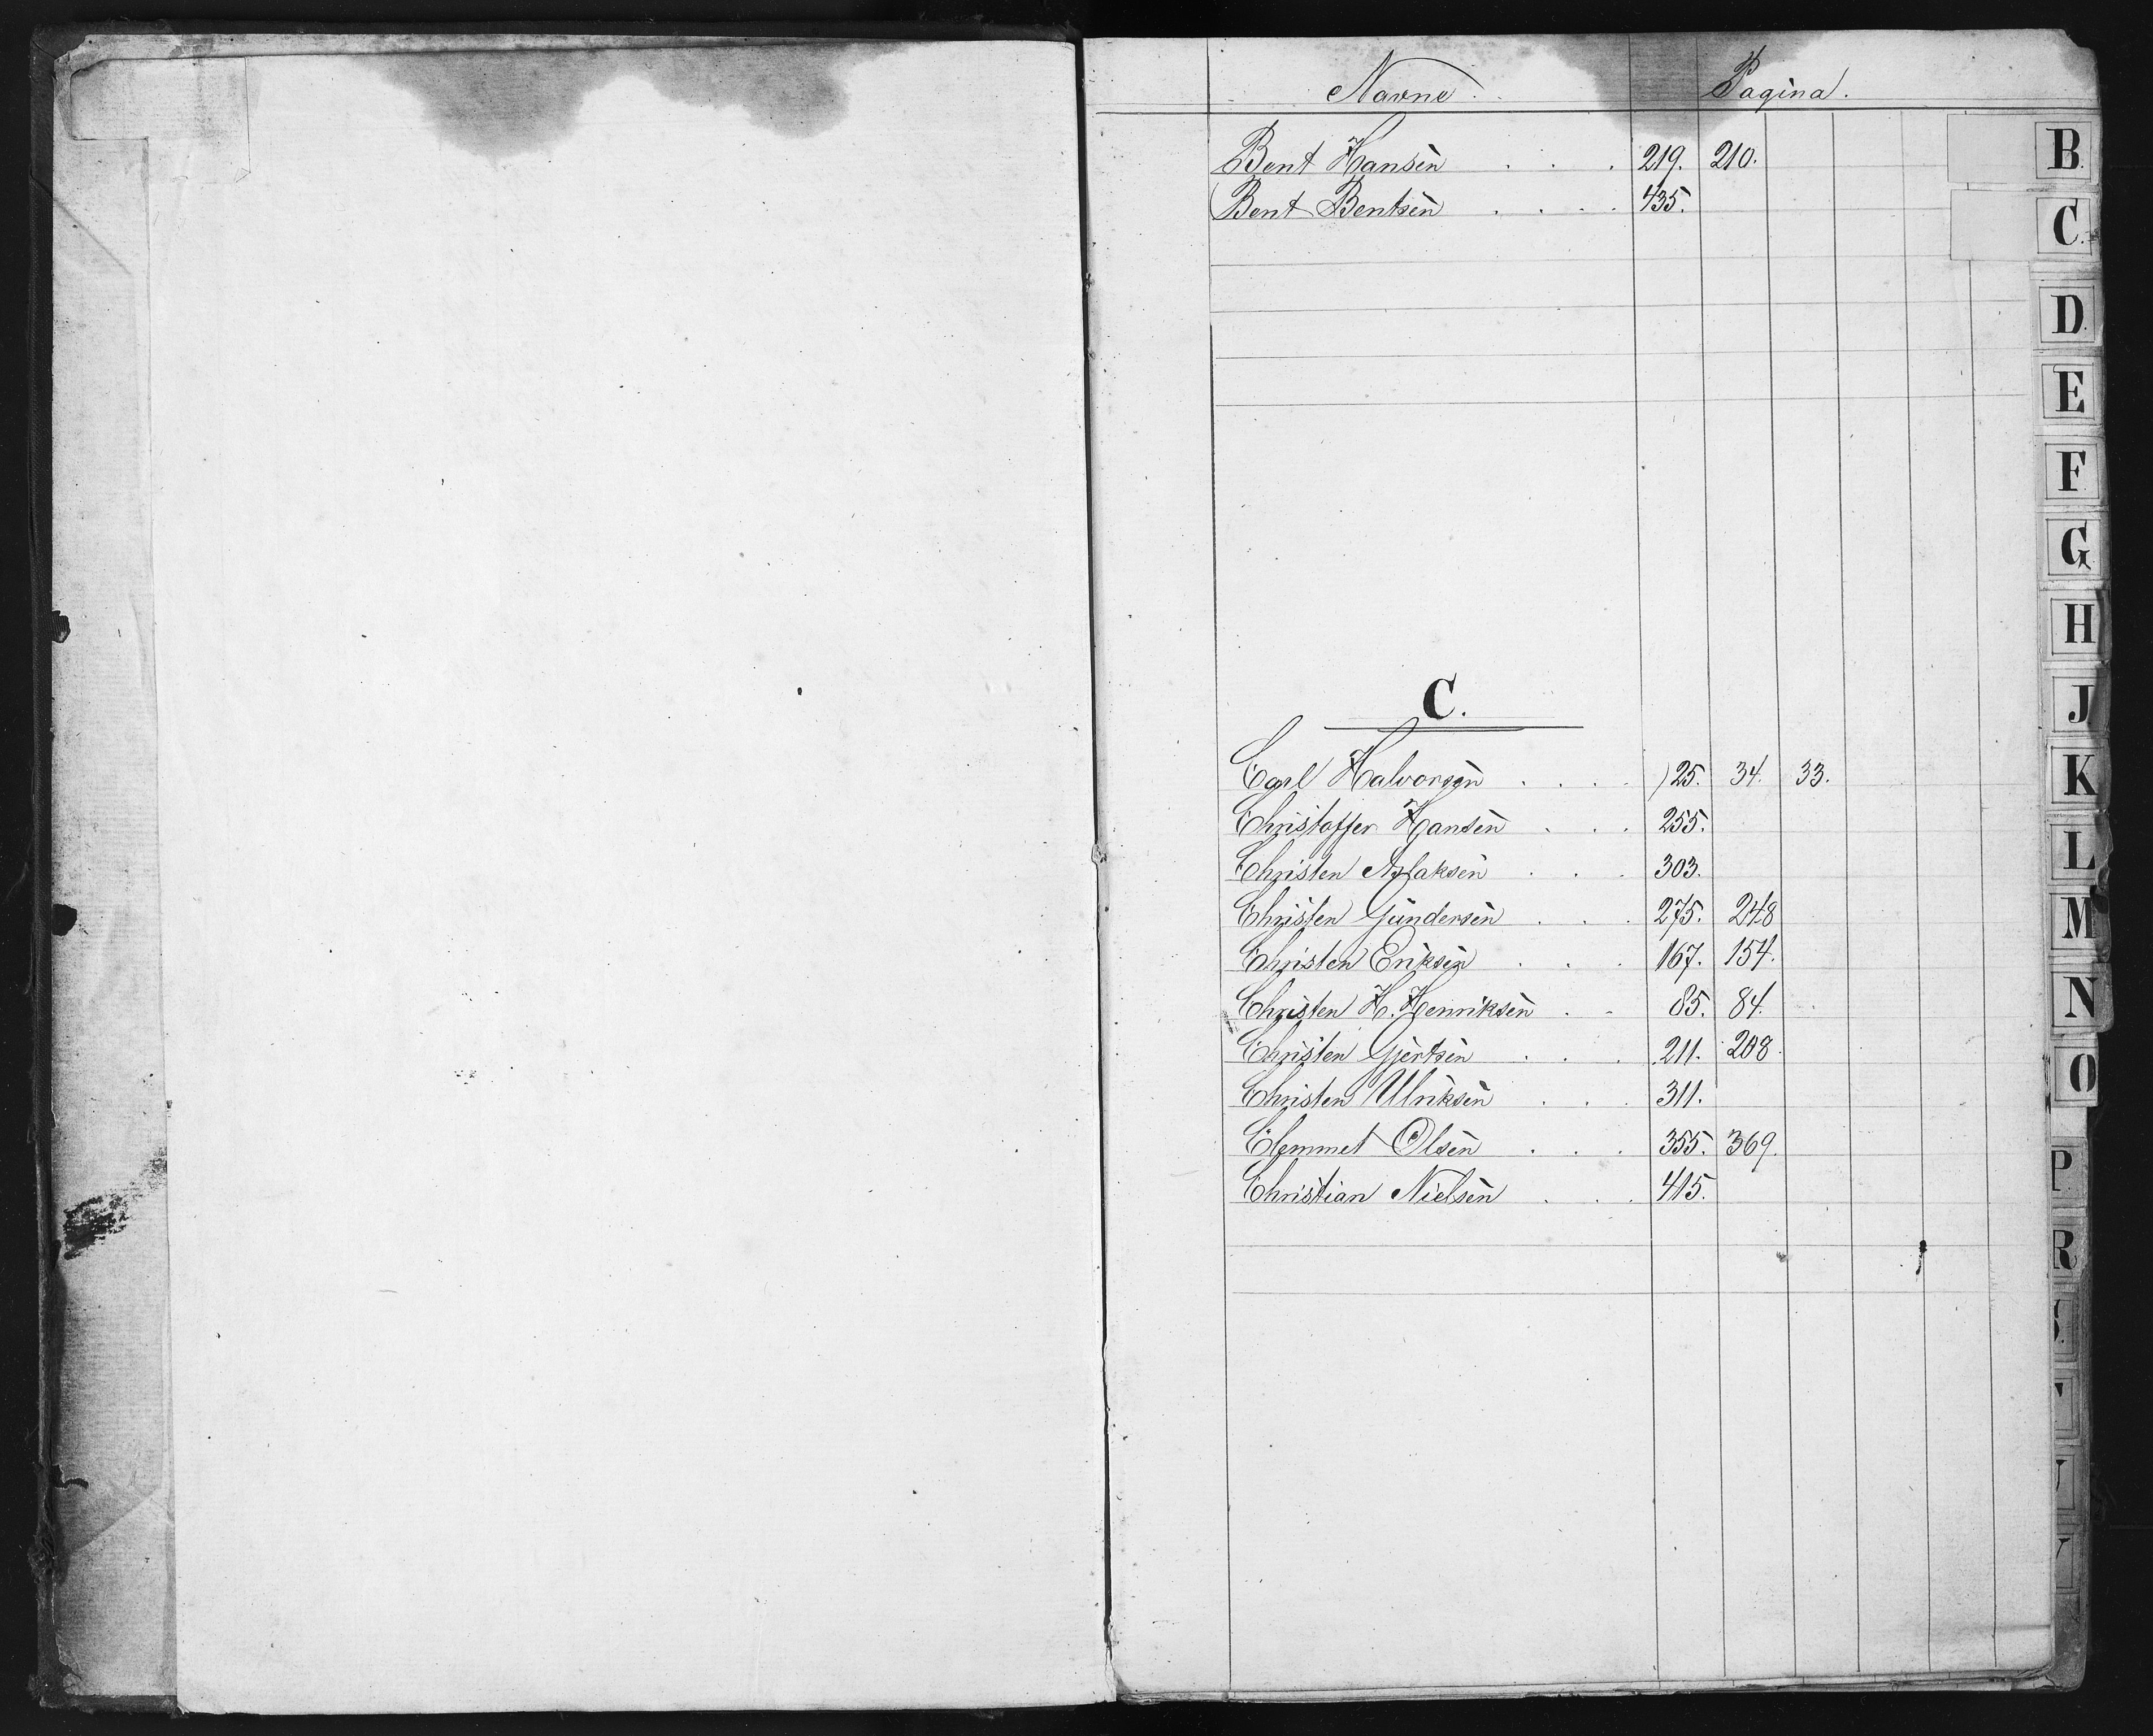 Navne. Pagina.
Bent Hansen . . . 219. 210.
Bent Bentsen . . . . 435.
C.
Carl Halvorsen . . . . 25. 34. 33.
Christoffer Hansen . . . 255.
Christen Aslaksen . . . 303.
Christen Gündersen . . . 275. 248
Christen Eriksen . . . 167. 154.
Christen H. Henriksen . . 85. 84.
Christen Gjertsen . . . 211. 208.
Christen Ulriksen . . . 311.
Clemmet Olsen . . . 355. 369.
Christian Nielsen . . . 415.
B.
C.
D.
E
F
G
H
J
K
L
M
N
O
P
R